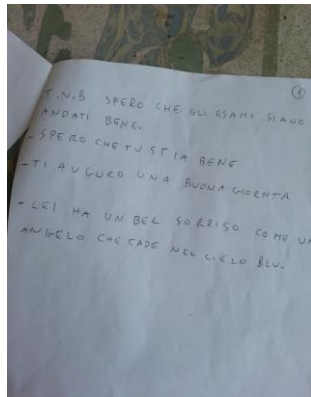 ①
T.V.B SPERO CHE GLI ESAMI SIANO
ANDATI BENE.
- SPERO CHE TU STIA BENE
- TI AUGURO UNA BUONA GIORNTA
- LEI HA UN BEL SORRISO COME UN
ANGELO CHE CADE NEL CIELO BLU.